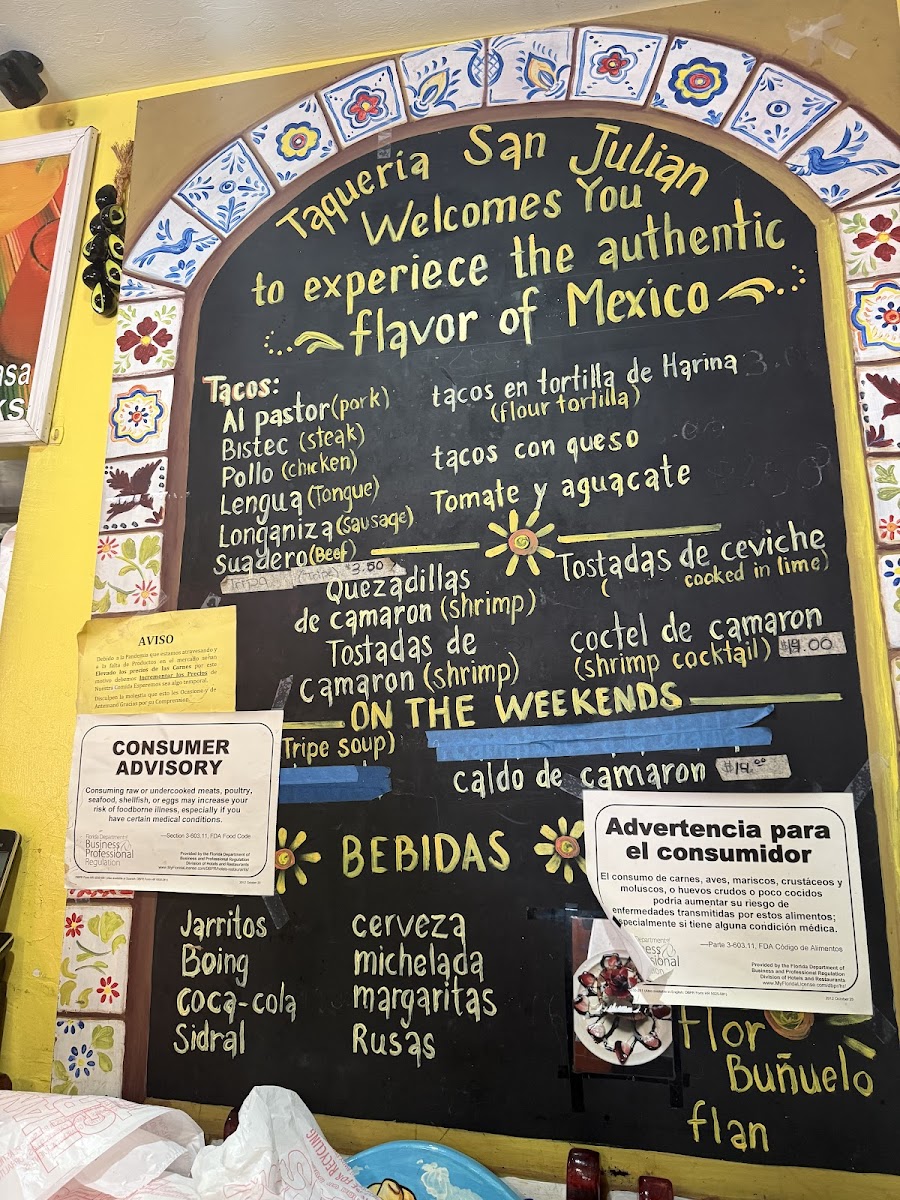 Taqueria San Julian
Welcomes You
to experiece the authentic
flavor of Mexico
Tacos:
Al pastor (pork)
Bistec (steak)
Pollo (chicken)
Lengua (Tongue)
Longaniza (sausage)
Suadero (Beef)
Tripa (Tripe) $3.50
tacos en tortilla de Harina
(flour tortilla)
tacos con queso
Tomate y aguacate
Quezadillas
de camaron (shrimp)
Tostadas de
camaron (shrimp)
Tostadas de ceviche
( cooked in lime)
coctel de camaron
(shrimp cocktail) $19.00
ON THE WEEKENDS
Tripe soup)
caldo de camaron $14.00
BEBIDAS
Jarritos
Boing
coca-cola
Sidral
cerveza
michelada
margaritas
Rusas
flor
Buñuelo
flan
AVISO
Debido a la Pandemia que estamos atravesando y
a la falta de Productos en el mercado
Elevado los precios de las Carnes por este
motivo debemos Incrementar los Precios de
Nuestra Comida Esperemos sea algo temporal.
Disculpen la molestia que esto les Ocasione y de
Antemano Gracias por su Comprension.
CONSUMER
ADVISORY
Consuming raw or undercooked meats, poultry,
seafood, shellfish, or eggs may increase your
risk of foodborne illness, especially if you
have certain medical conditions.
—Section 3-603.11, FDA Food Code
Florida Department of
Business
Professional
Regulation
Provided by the Florida Department of
Business and Professional Regulation
Division of Hotels and Restaurants
www.MyFloridaLicense.com/dbpr/hr/
Advertencia para
el consumidor
El consumo de carnes, aves, mariscos, crustáceos y
moluscos, o huevos crudos o poco cocidos
podria aumentar su riesgo de
enfermedades transmitidas por estos alimentos;
especialmente si tiene alguna condición médica.
—Parte 3-603.11, FDA Código de Alimentos
Provided by the Florida Department of
Business and Professional Regulation
Division of Hotels and Restaurants
www.MyFloridaLicense.com/dbpr/hr/